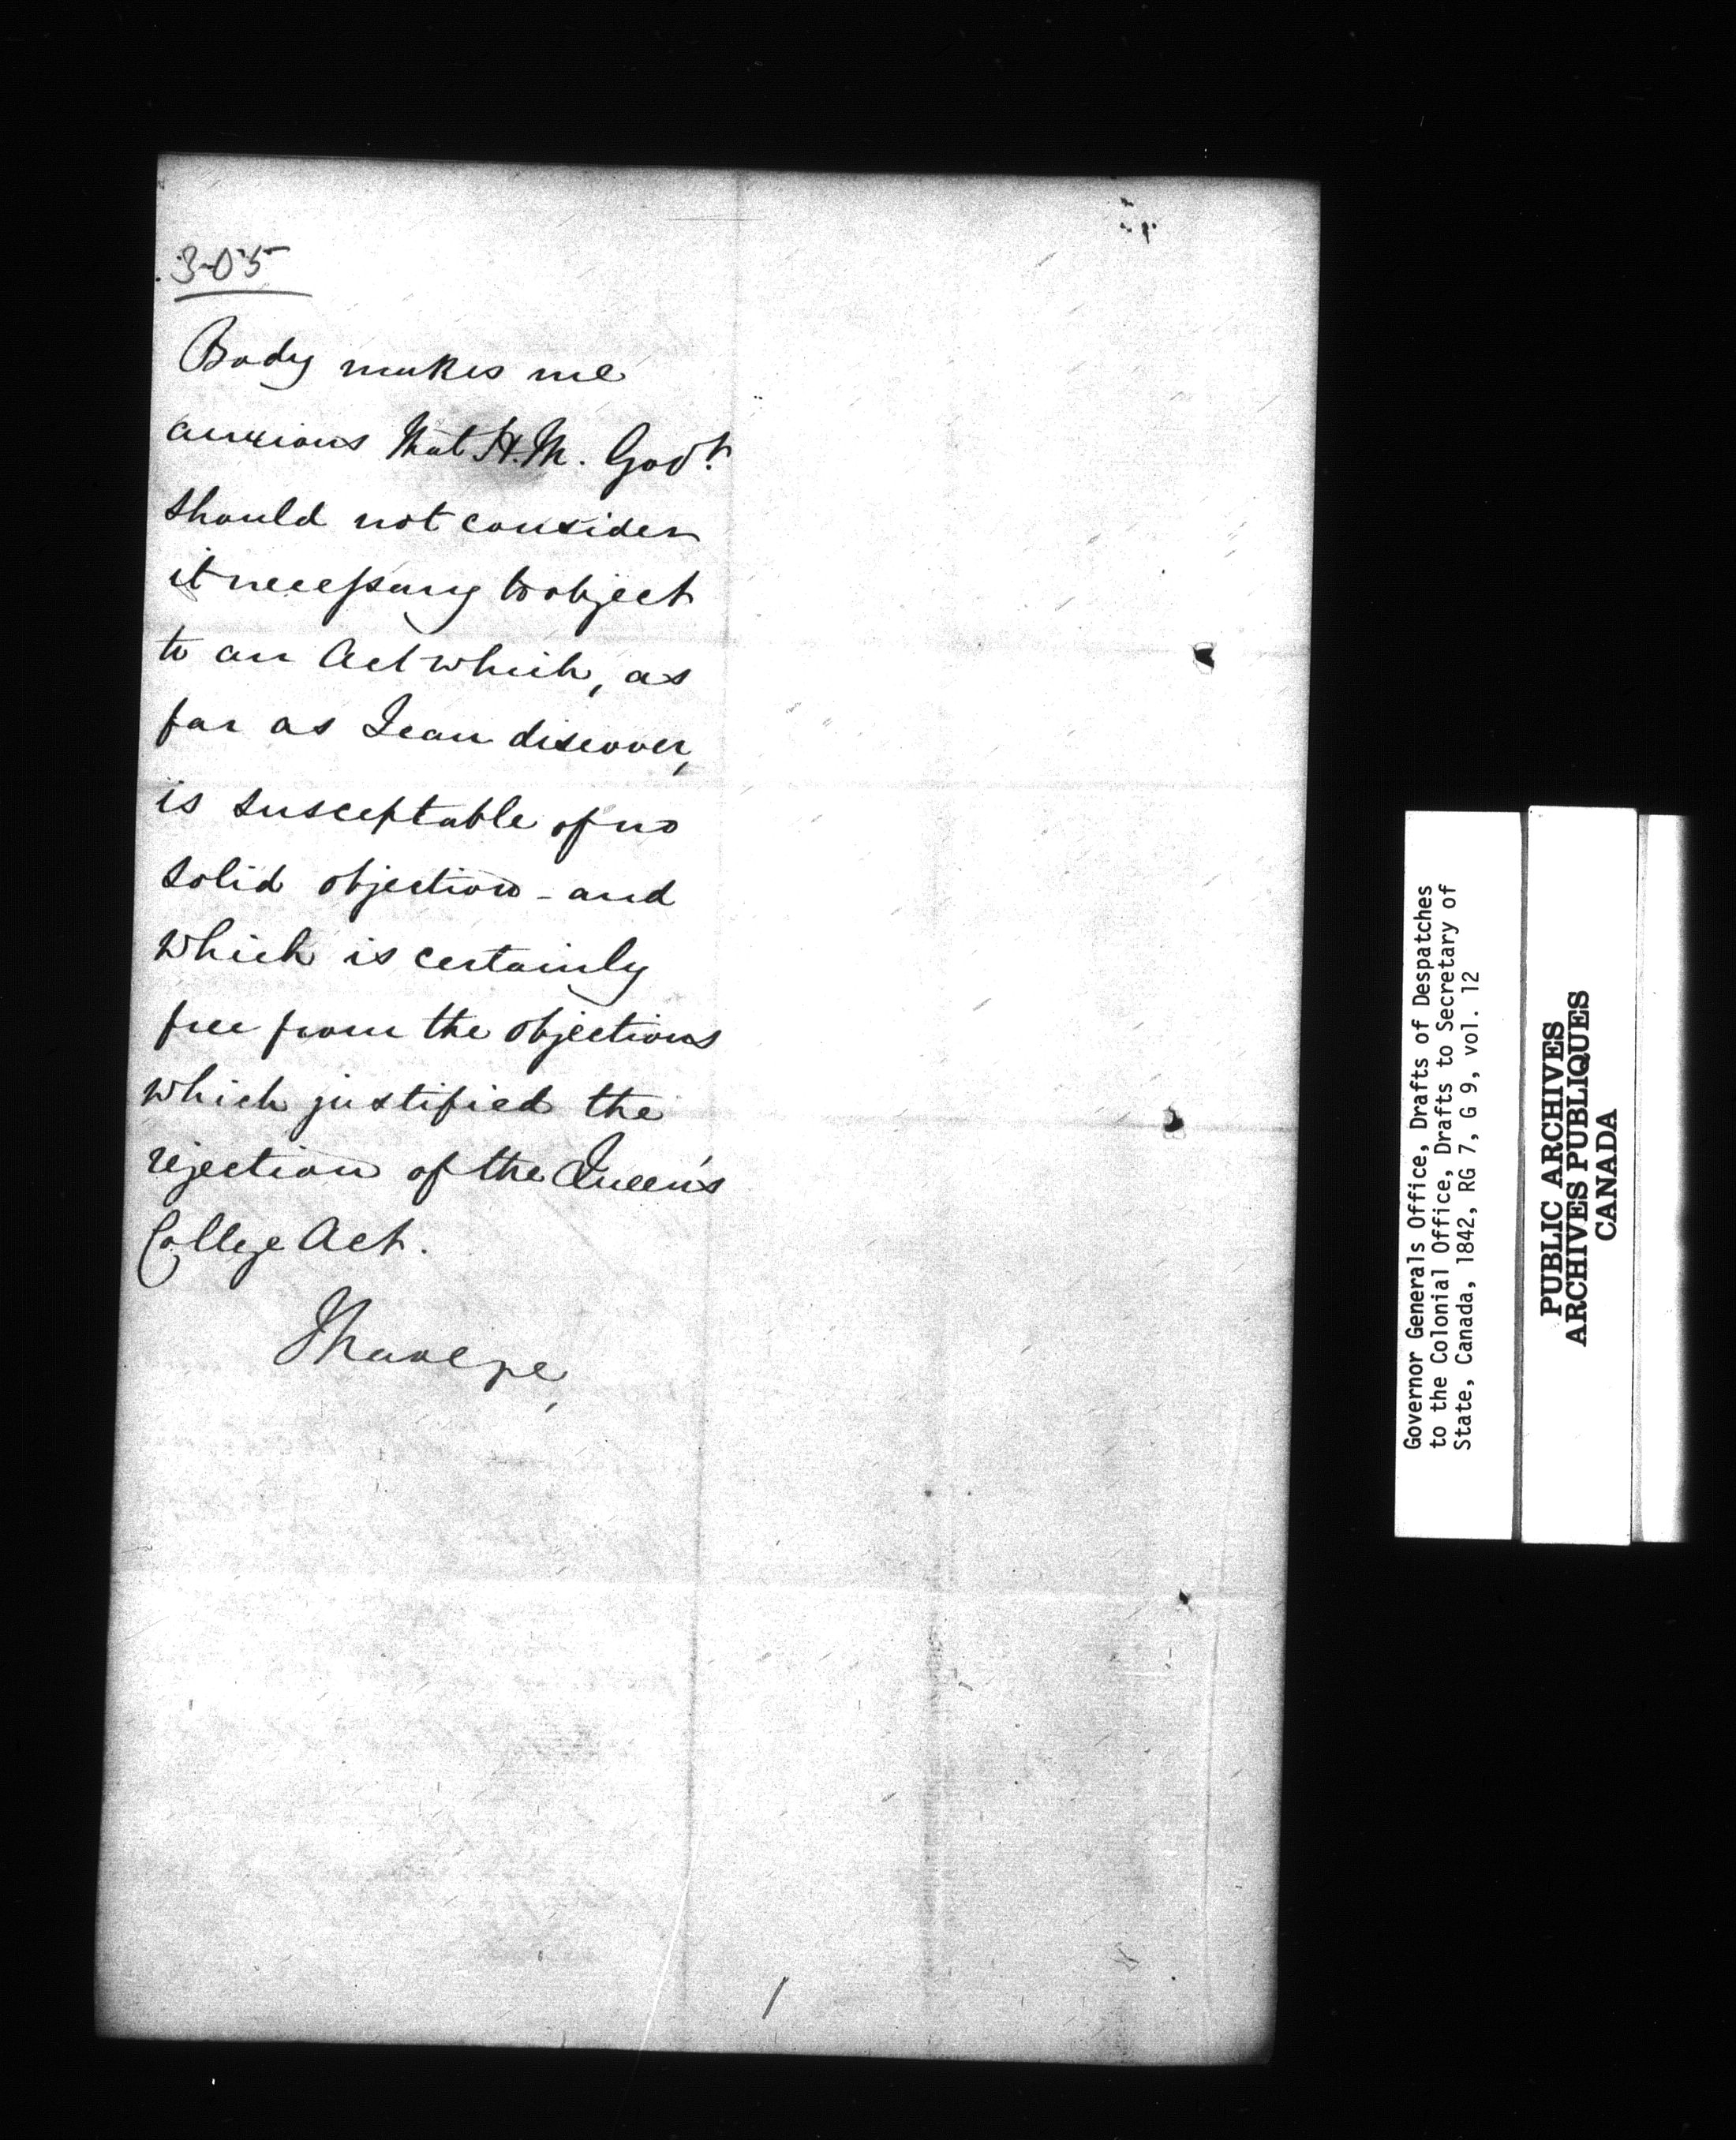 305
Body makes me
anxious that H.M. Govt.
should not consider
it necessary to object
to an Act which, as
far as I can discover,
is susceptable of no
solid objection - and
which is certainly
free from the objections
which justified the
rejection of the Queen's
College Act.
I have &c,
Governor Generals Office, Drafts of Despatches
to the Colonial Office, Drafts to Secretary of
State, Canada, 1842, RG 7, G 9, vol. 12
PUBLIC ARCHIVES
ARCHIVES PUBLIQUES
CANADA